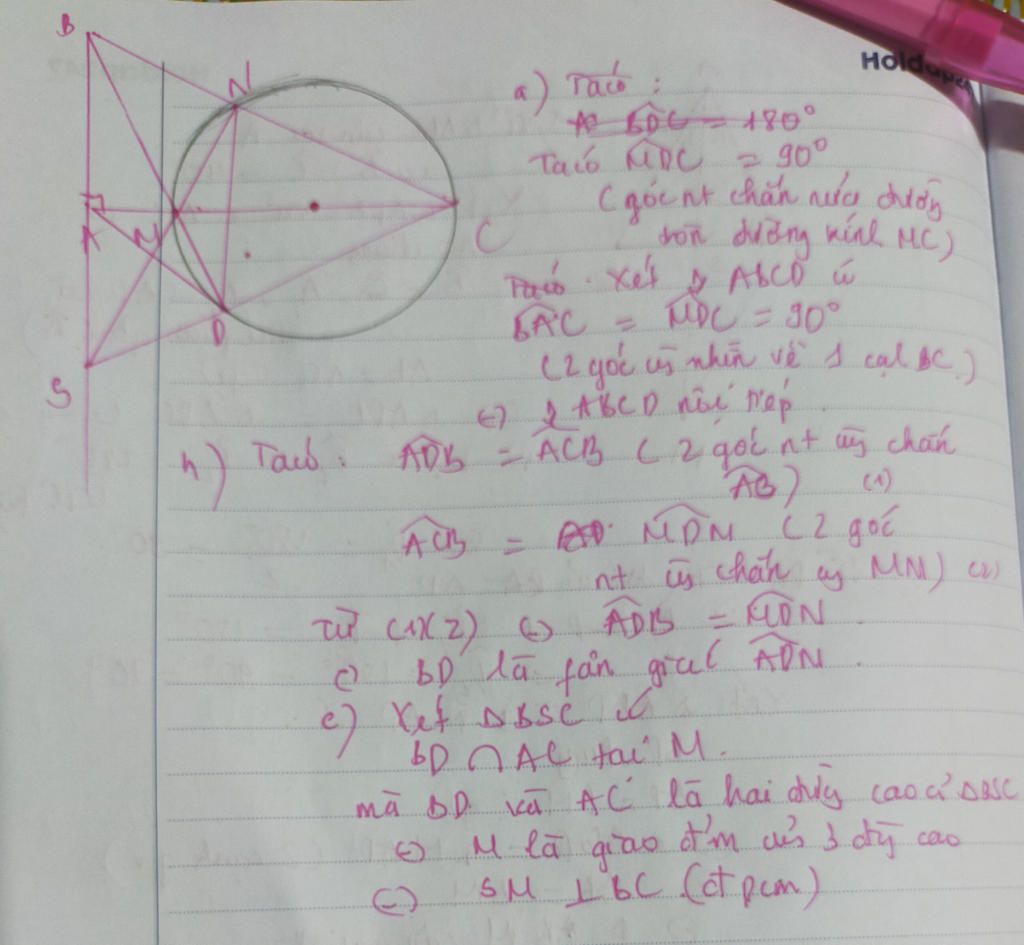 B
N
A
M
C
D
S
Holdup
a) Ta có :
A BDC = 180°
Ta có MDC = 90°
(góc nt chắn nửa đường
tròn đường kính MC)
Ta có . Xét ABCD có
BAC = MDC = 90°
(2 góc cùng nhìn về 1 cạh BC)
ABCD nội tiếp .
b) Ta có : ADB = ACB (2 góc nt cùg chắn
AB) (1)
ACB = MDN (2 góc
nt cùg chắn cg MN) (2)
Từ (1)(2) ADB = MDN .
BD là fân giác ADN .
c) Xét ΔBSC có
BD ∩ AC tại M .
mà BD và AC là hai đường cao củ ΔBSC
M là giao đ'm của 3 đg cao
SM ⊥ BC (đpcm)